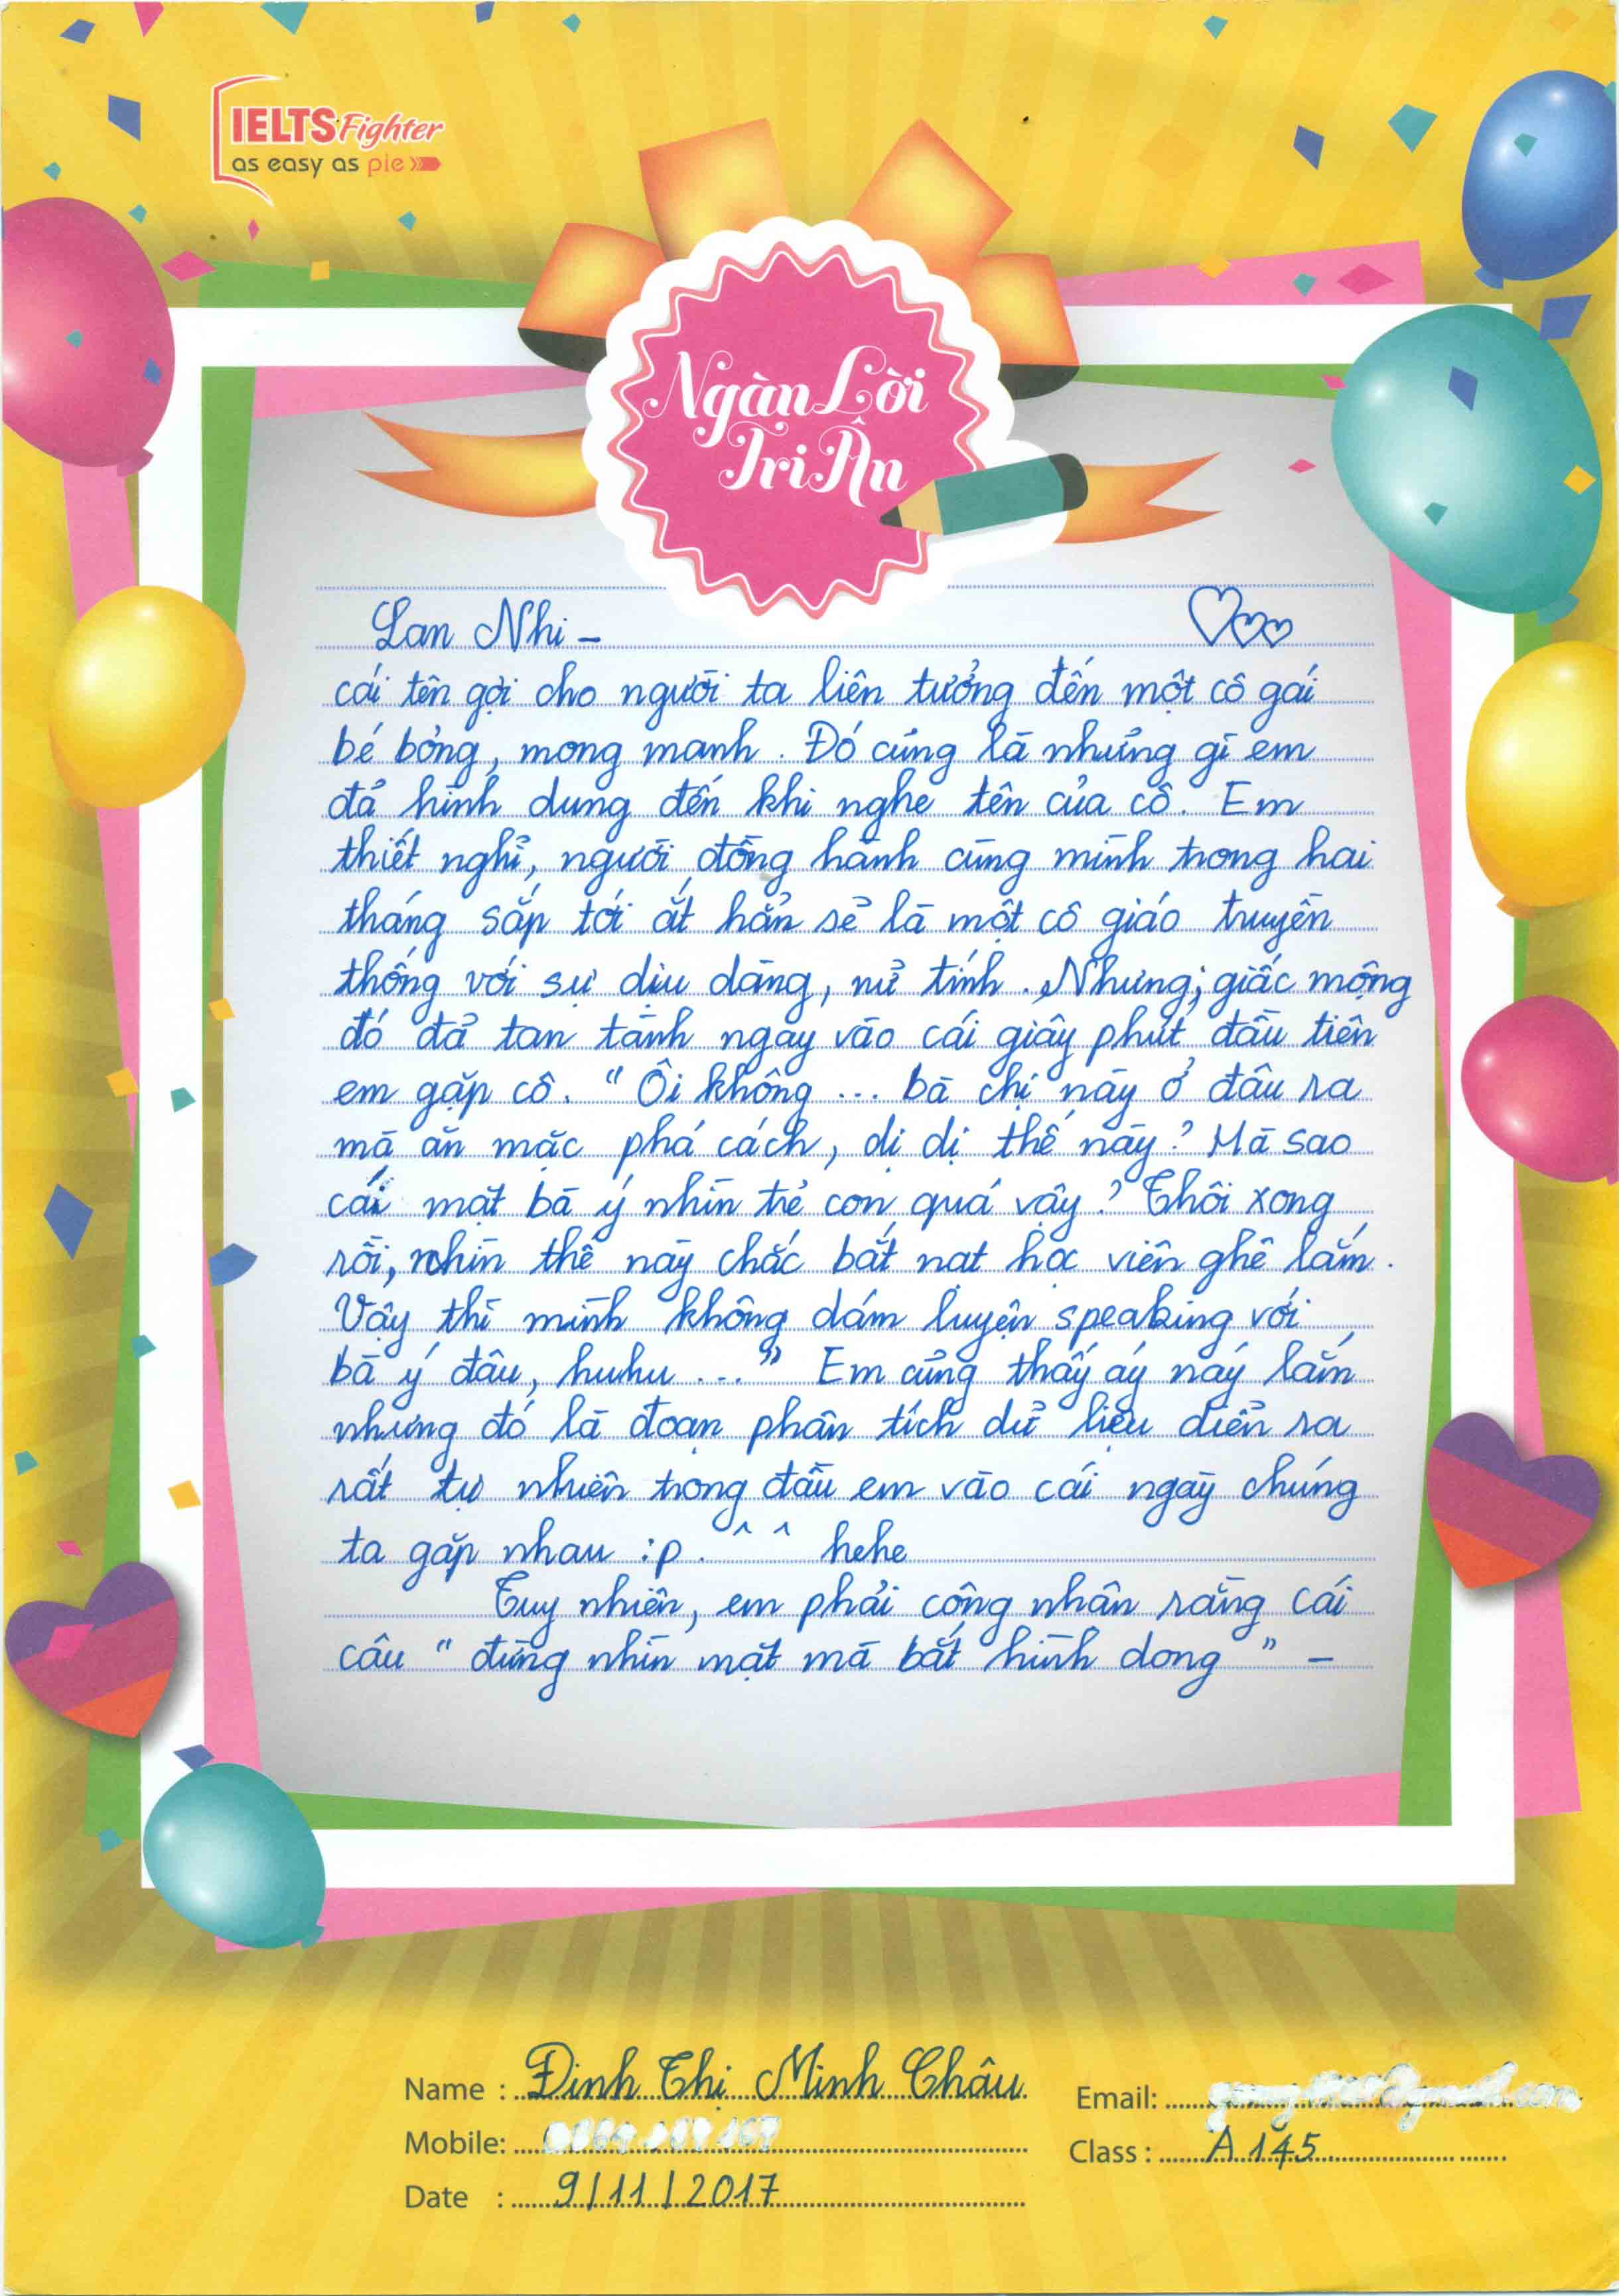 IELTS Fighter
as easy as pie
Ngàn Lời
Tri Ân
Lan Nhi –
cái tên gợi cho người ta liên tưởng đến một cô gái
bé bỏng, mong manh. Đó cũng là những gì em
đã hình dung đến khi nghe tên của cô. Em
thiết nghĩ, người đồng hành cùng mình trong hai
tháng sắp tới ắt hẳn sẽ là một cô giáo truyền
thống với sự dịu dàng, nữ tính. Nhưng; giấc mộng
đó đã tan tành ngay vào cái giây phút đầu tiên
em gặp cô. "Ôi không ... bà chị này ở đâu ra
mà ăn mặc phá cách, dị dị thế này? Mà sao
cái mặt bà ý nhìn trẻ con quá vậy? Thôi xong
rồi, nhìn thế này chắc bắt nạt học viên ghê lắm.
Vậy thì mình không dám luyện speaking với
bà ý đâu, huhu ..." Em cũng thấy áy náy lắm
nhưng đó là đoạn phân tích dữ liệu diễn ra
rất tự nhiên trong đầu em vào cái ngày chúng
ta gặp nhau :p. ^ ^ hehe
Tuy nhiên, em phải công nhận rằng cái
câu "đừng nhìn mặt mà bắt hình dong" –
Name : Đinh Thị Minh Châu
Email:
Mobile:
Class : A145
Date : 9/11/2017